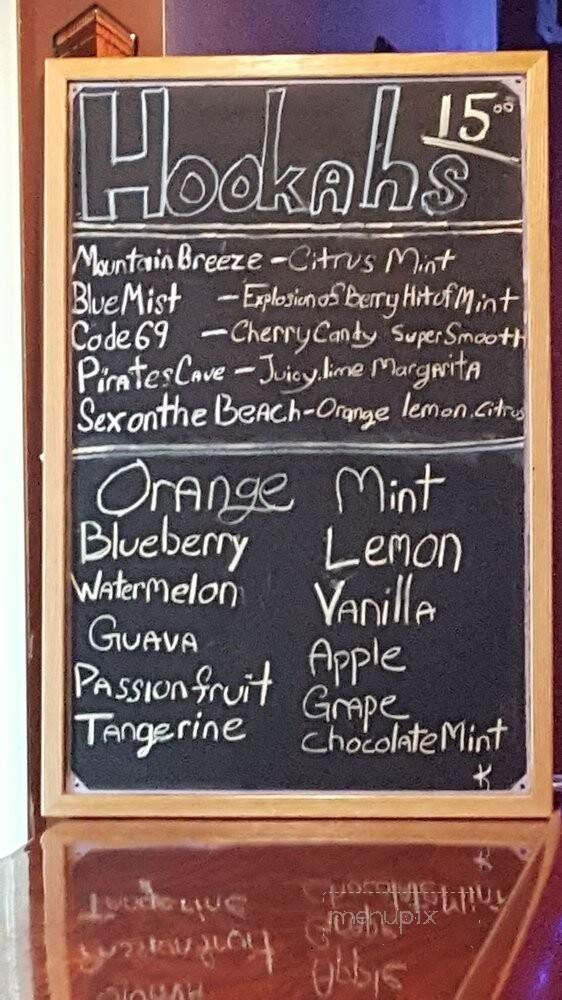 Hookahs 15.00
Mountain Breeze - Citrus Mint
Blue Mist - Explosion of Berry Hit of Mint
Code 69 - Cherry Candy Super Smooth
Pirates Cave - Juicy.lime Margarita
Sex on the Beach - Orange lemon.citrus
Orange Mint
Blueberry Lemon
Watermelon Vanilla
Guava Apple
Passionfruit Grape
Tangerine Chocolate Mint
menupix